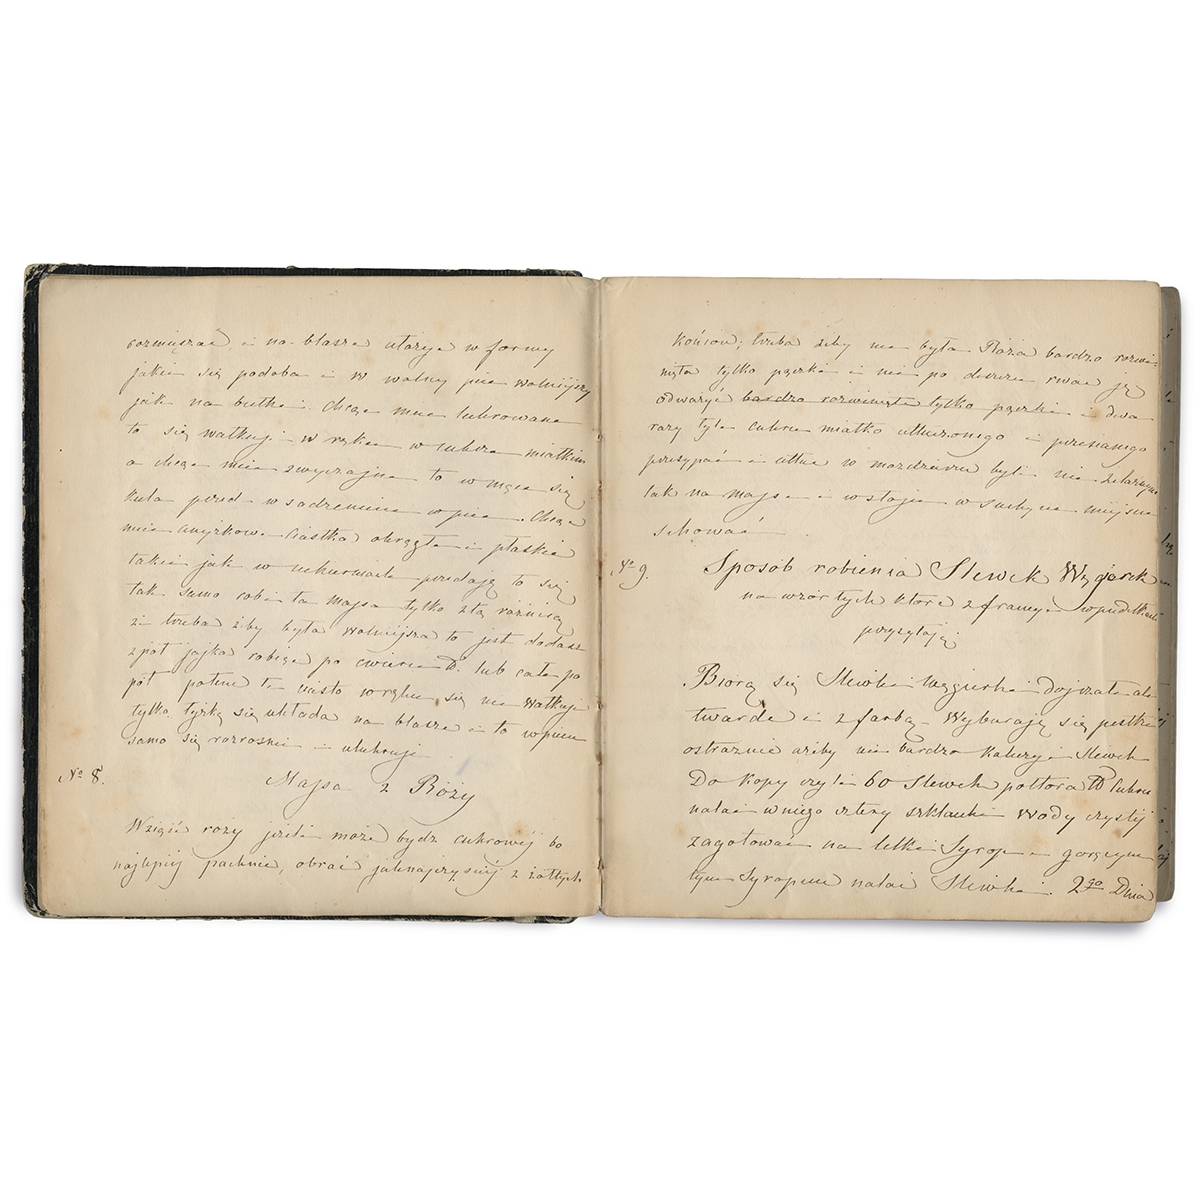 rozmięszać i na blasze ułożyć w formy
jakie się podoba i w wolny piec wolniejszy
jak na bułki. Chcąc mieć lukrowane
to się wałkuje w ręku w cukrze miałkim
a chcąc mieć zwyczajne to w mące się
kula przed wsadzeniem w piec. Chcąc
mieć anyżkowe ciastka okrągłe i płaskie
takie jak w cukierniach przedają to się
tak samo robi ta massa tylko z tą różnicą
że trzeba żeby była wolniejsza to jest dodać
z pół jajka robiąc po ćwierci ℔. lub całe po
pół potem te ciasto w ręku się nie wałkuje
tylko łyżką się układa na blasze i to w piecu
samo się rozrośnie i ulukruje
No 8. Massa z Róży
Wziąść róży jeżeli może bydź cukrowéj bo
najlepiéj pachnie, obrać jaknajczyściéj z żółtych
końców; trzeba żeby nie była Róża bardzo rozwi-
nięta tylko pączki i nie po deszczu rwać ją
odważyć bardzo rozwinięte tylko pączki i dwa
razy tyle cukru miałko utłuczonego i przesianego
przesypać i utłuc w moździerzu byle nie żelaznym
tak na massę i w słoje w suchym miejscu
schować
No 9. Sposób robienia Śliwek Węgierek
na wzór tych które z francyi w pudełkach
przysyłają
Biorą się Śliwki Węgierki dojrzałe ale
twarde i z farbą. Wybierają się pestki
ostrożnie ażeby nie bardzo kaleczyć Śliwek
Do kopy czyli 60 Śliwek półtora ℔ cukru
nalać w niego cztery szklanki Wody czystéj
zagotować na letki Syrop i gorącym
tym Syropem nalać Śliwki. 2go Dnia